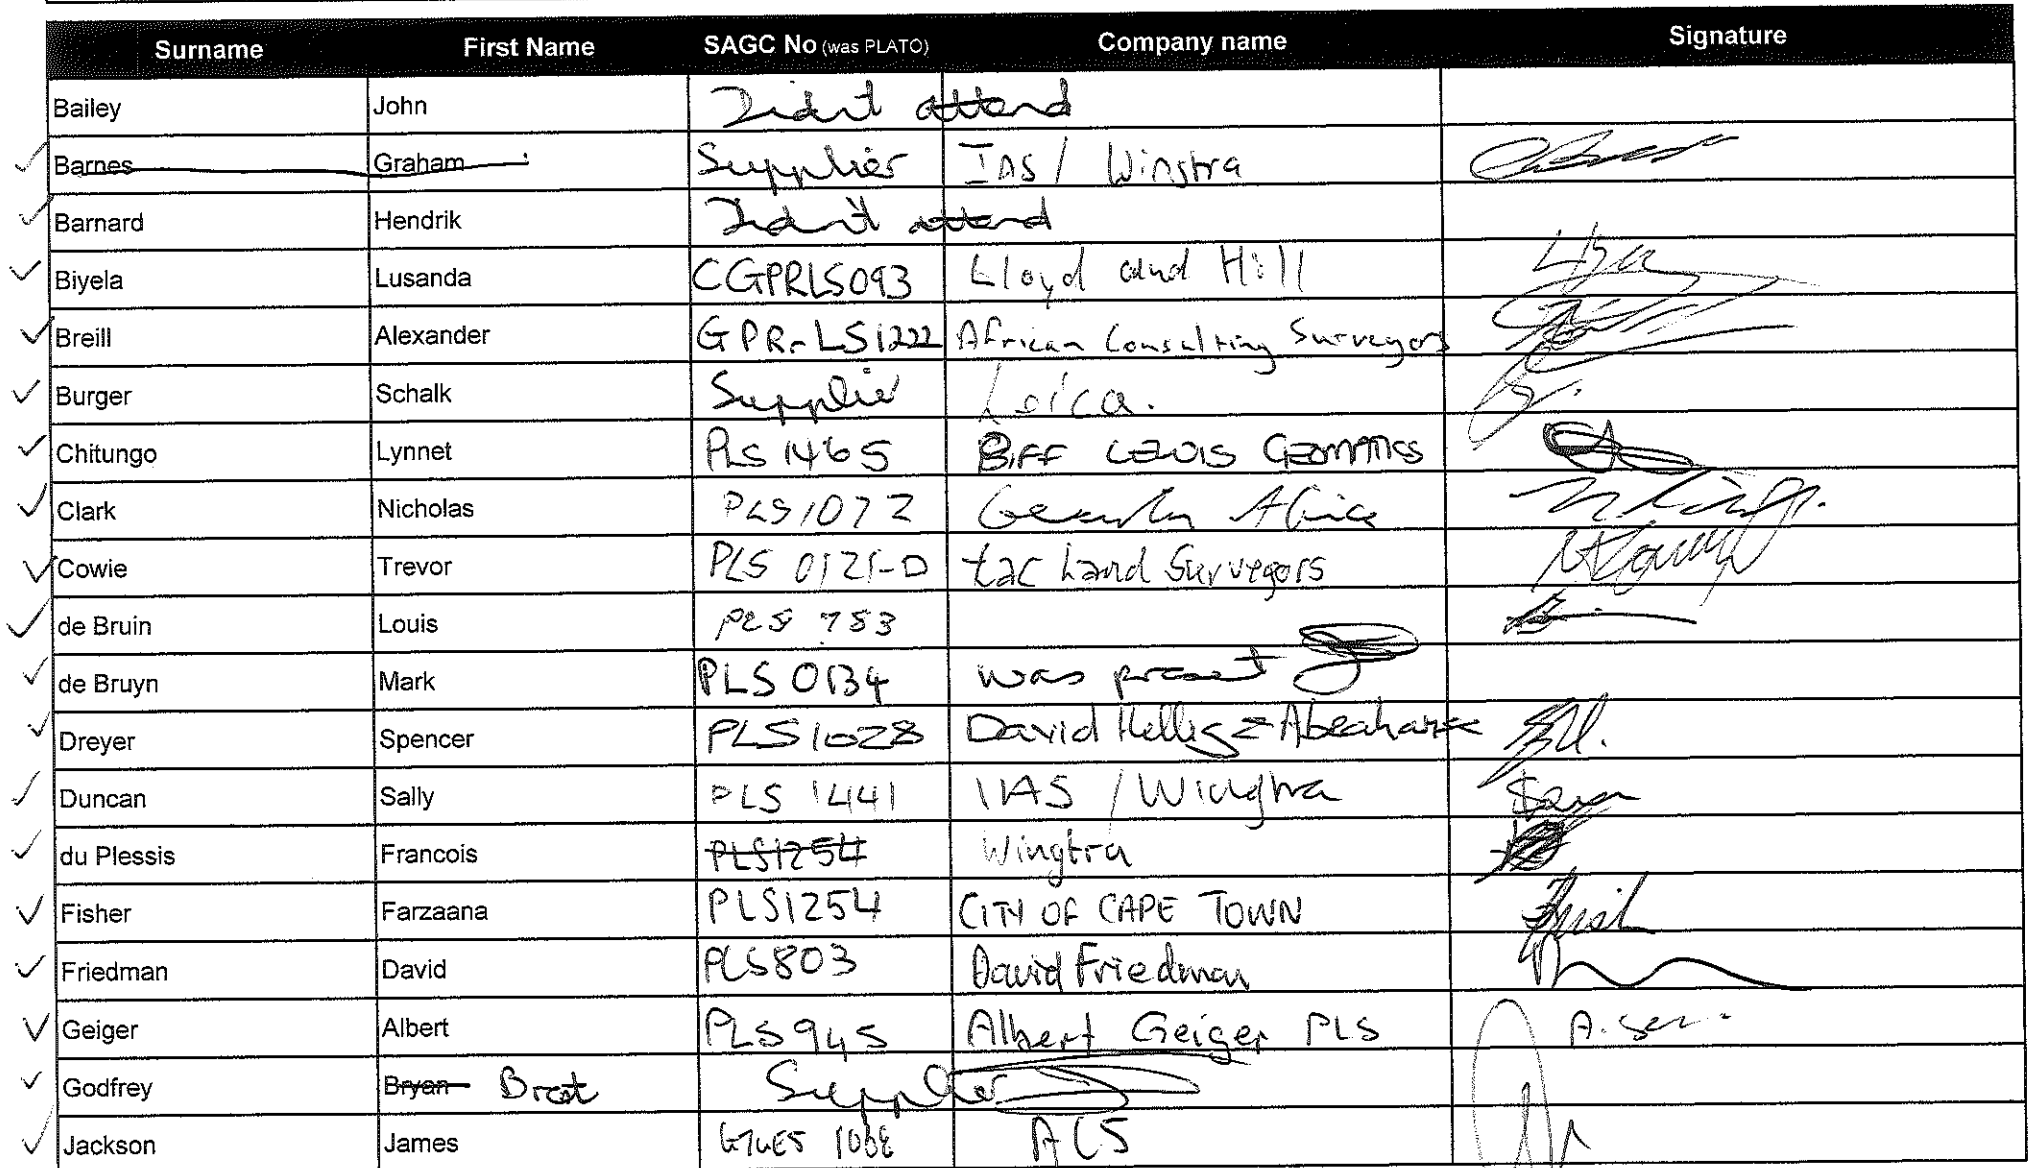 Surname First Name SAGC No (was PLATO) Company name Signature
Bailey John Didn't attend
Barnes Graham Supplier IAS / Winstra
Barnard Hendrik Didn't attend
Biyela Lusanda CGPRLS093 Lloyd and Hill
Breill Alexander GPR-LS1222 African Consulting Surveyors
Burger Schalk Supplier Leica.
Chitungo Lynnet PLS 1465 BIFF LEWIS GEOMATICS
Clark Nicholas PLS1072 Africa
Cowie Trevor PLS 0121-D tac Land Surveyors
de Bruin Louis PLS 783
de Bruyn Mark PLS 0134 was present
Dreyer Spencer PLS1028 David Hellig
Duncan Sally PLS 1441 IAS / Wingtra
du Plessis Francois PLS1254 Wingtra
Fisher Farzaana PLS1254 CITY OF CAPE TOWN
Friedman David PLS803 David Friedman
Geiger Albert PLS945 Albert Geiger PLS
Godfrey Bryan Brat Supplier
Jackson James ACS